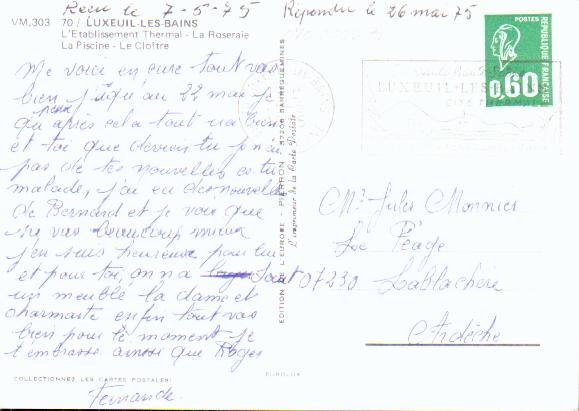 Recu le 7-5-75 Répondu le 26 mai 75
VM.303 70 / LUXEUIL-LES-BAINS
L'Etablissement Thermal - La Roseraie
La Piscine - Le Cloître
POSTES
0,60
REPUBLIQUE FRANÇAISE
LUXEUIL-LES-B
Me voici en cure tout vas
bien jusqu'au 22 mai je
après cela tout ira bien
et toi que deviens tu je n'ai
pas de tes nouvelles es tu
malade, j'ai eu des nouvelles
de Bernard et je vois que
sa vas beaucoup mieux
j'en suis heureuse pour lui
et pour toi, on a loué
un meublé la dame est
charmante enfin tout vas
bien pour le moment je
t'embrasse ainsi que Roger
Fernande.
EDITION DE L'EUROPE - PIERRON - 57206 SARREGUEMINES
L'imprimeur de la Carte Postale
Mr Jules Monnier
Le Péage
07230 Lablachère
Ardèche
COLLECTIONNEZ LES CARTES POSTALES!
EUROLUX